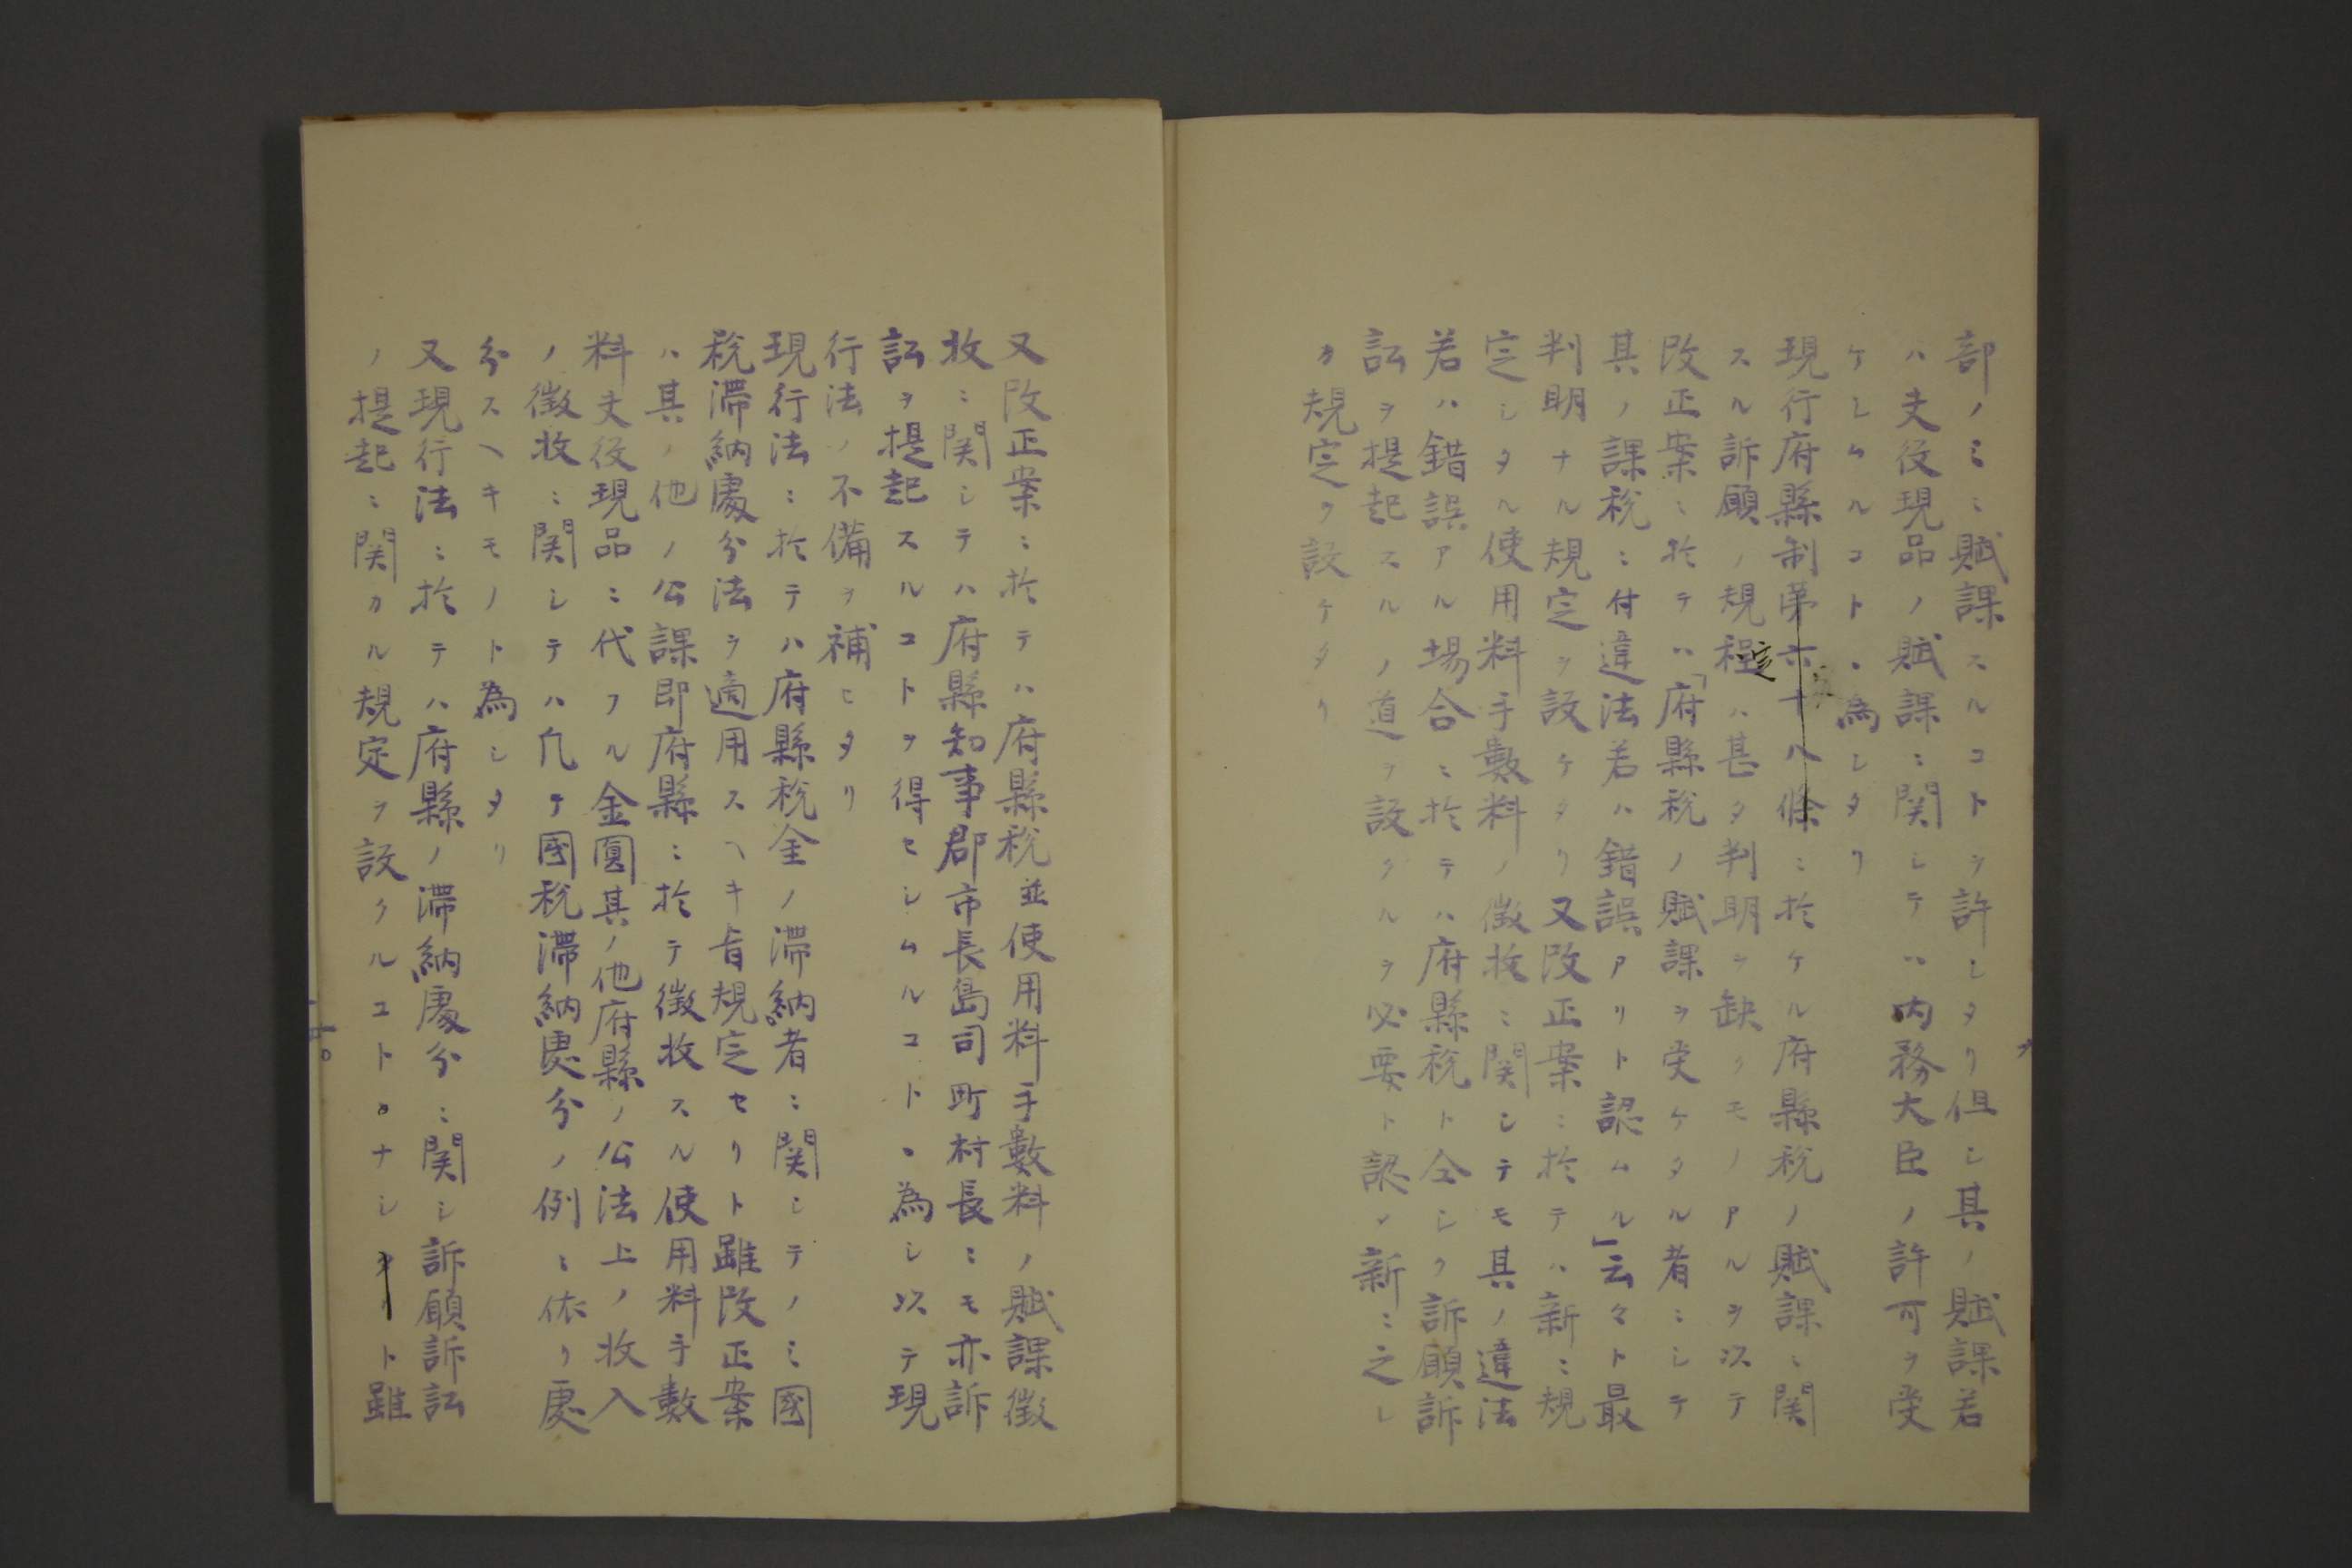 部ノミニ賦課スルコトヲ許シタリ但シ其ノ賦課若
ハ夫役現品ノ賦課ニ関シテハ内務大臣ノ許可ヲ受
ケシムルコトヽ為シタリ
現行府縣制第六十八條ニ於ケル府縣税ノ賦課ニ関
スル訴願ノ規程定ハ甚タ判明ヲ缺クモノアルヲ以テ
改正案ニ於テハ「府縣税ノ賦課ヲ受ケタル者ニシテ
其ノ課税ニ付違法若ハ錯誤アリト認ムル」云々ト最
判明ナル規定ヲ設ケタリ又改正案ニ於テハ新ニ規
定シタル使用料手數料ノ徴收ニ関シテモ其ノ違法
若ハ錯誤アル場合ニ於テハ府縣税ト仝シク訴願訴
訟ヲ提起スルノ道ヲ設クルヲ必要ト認メ新ニ之レ
カ規定ヲ設ケタリ
又改正案ニ於テハ府縣税並使用料手數料ノ賦課徴
收ニ関シテハ府縣知事郡市長島司町村長ニモ亦訴
訟ヲ提起スルコトヲ得セシムルコトヽ為シ以テ現
行法ノ不備ヲ補ヒタリ
現行法ニ於テハ府縣税金ノ滞納者ニ関シテノミ國
税滞納處分法ヲ適用スヘキ旨規定セリト雖改正案
ハ其ノ他ノ公課即府縣ニ於テ徴收スル使用料手數
料夫役現品ニ代フル金圓其ノ他府縣ノ公法上ノ收入
ノ徴收ニ関シテハ凡テ國税滞納處分ノ例ニ依リ處
分スヘキモノト為シタリ
又現行法ニ於テハ府縣ノ滞納處分ニ関シ訴願訴訟
ノ提起ニ関カル規定ヲ設クルコトナシト雖